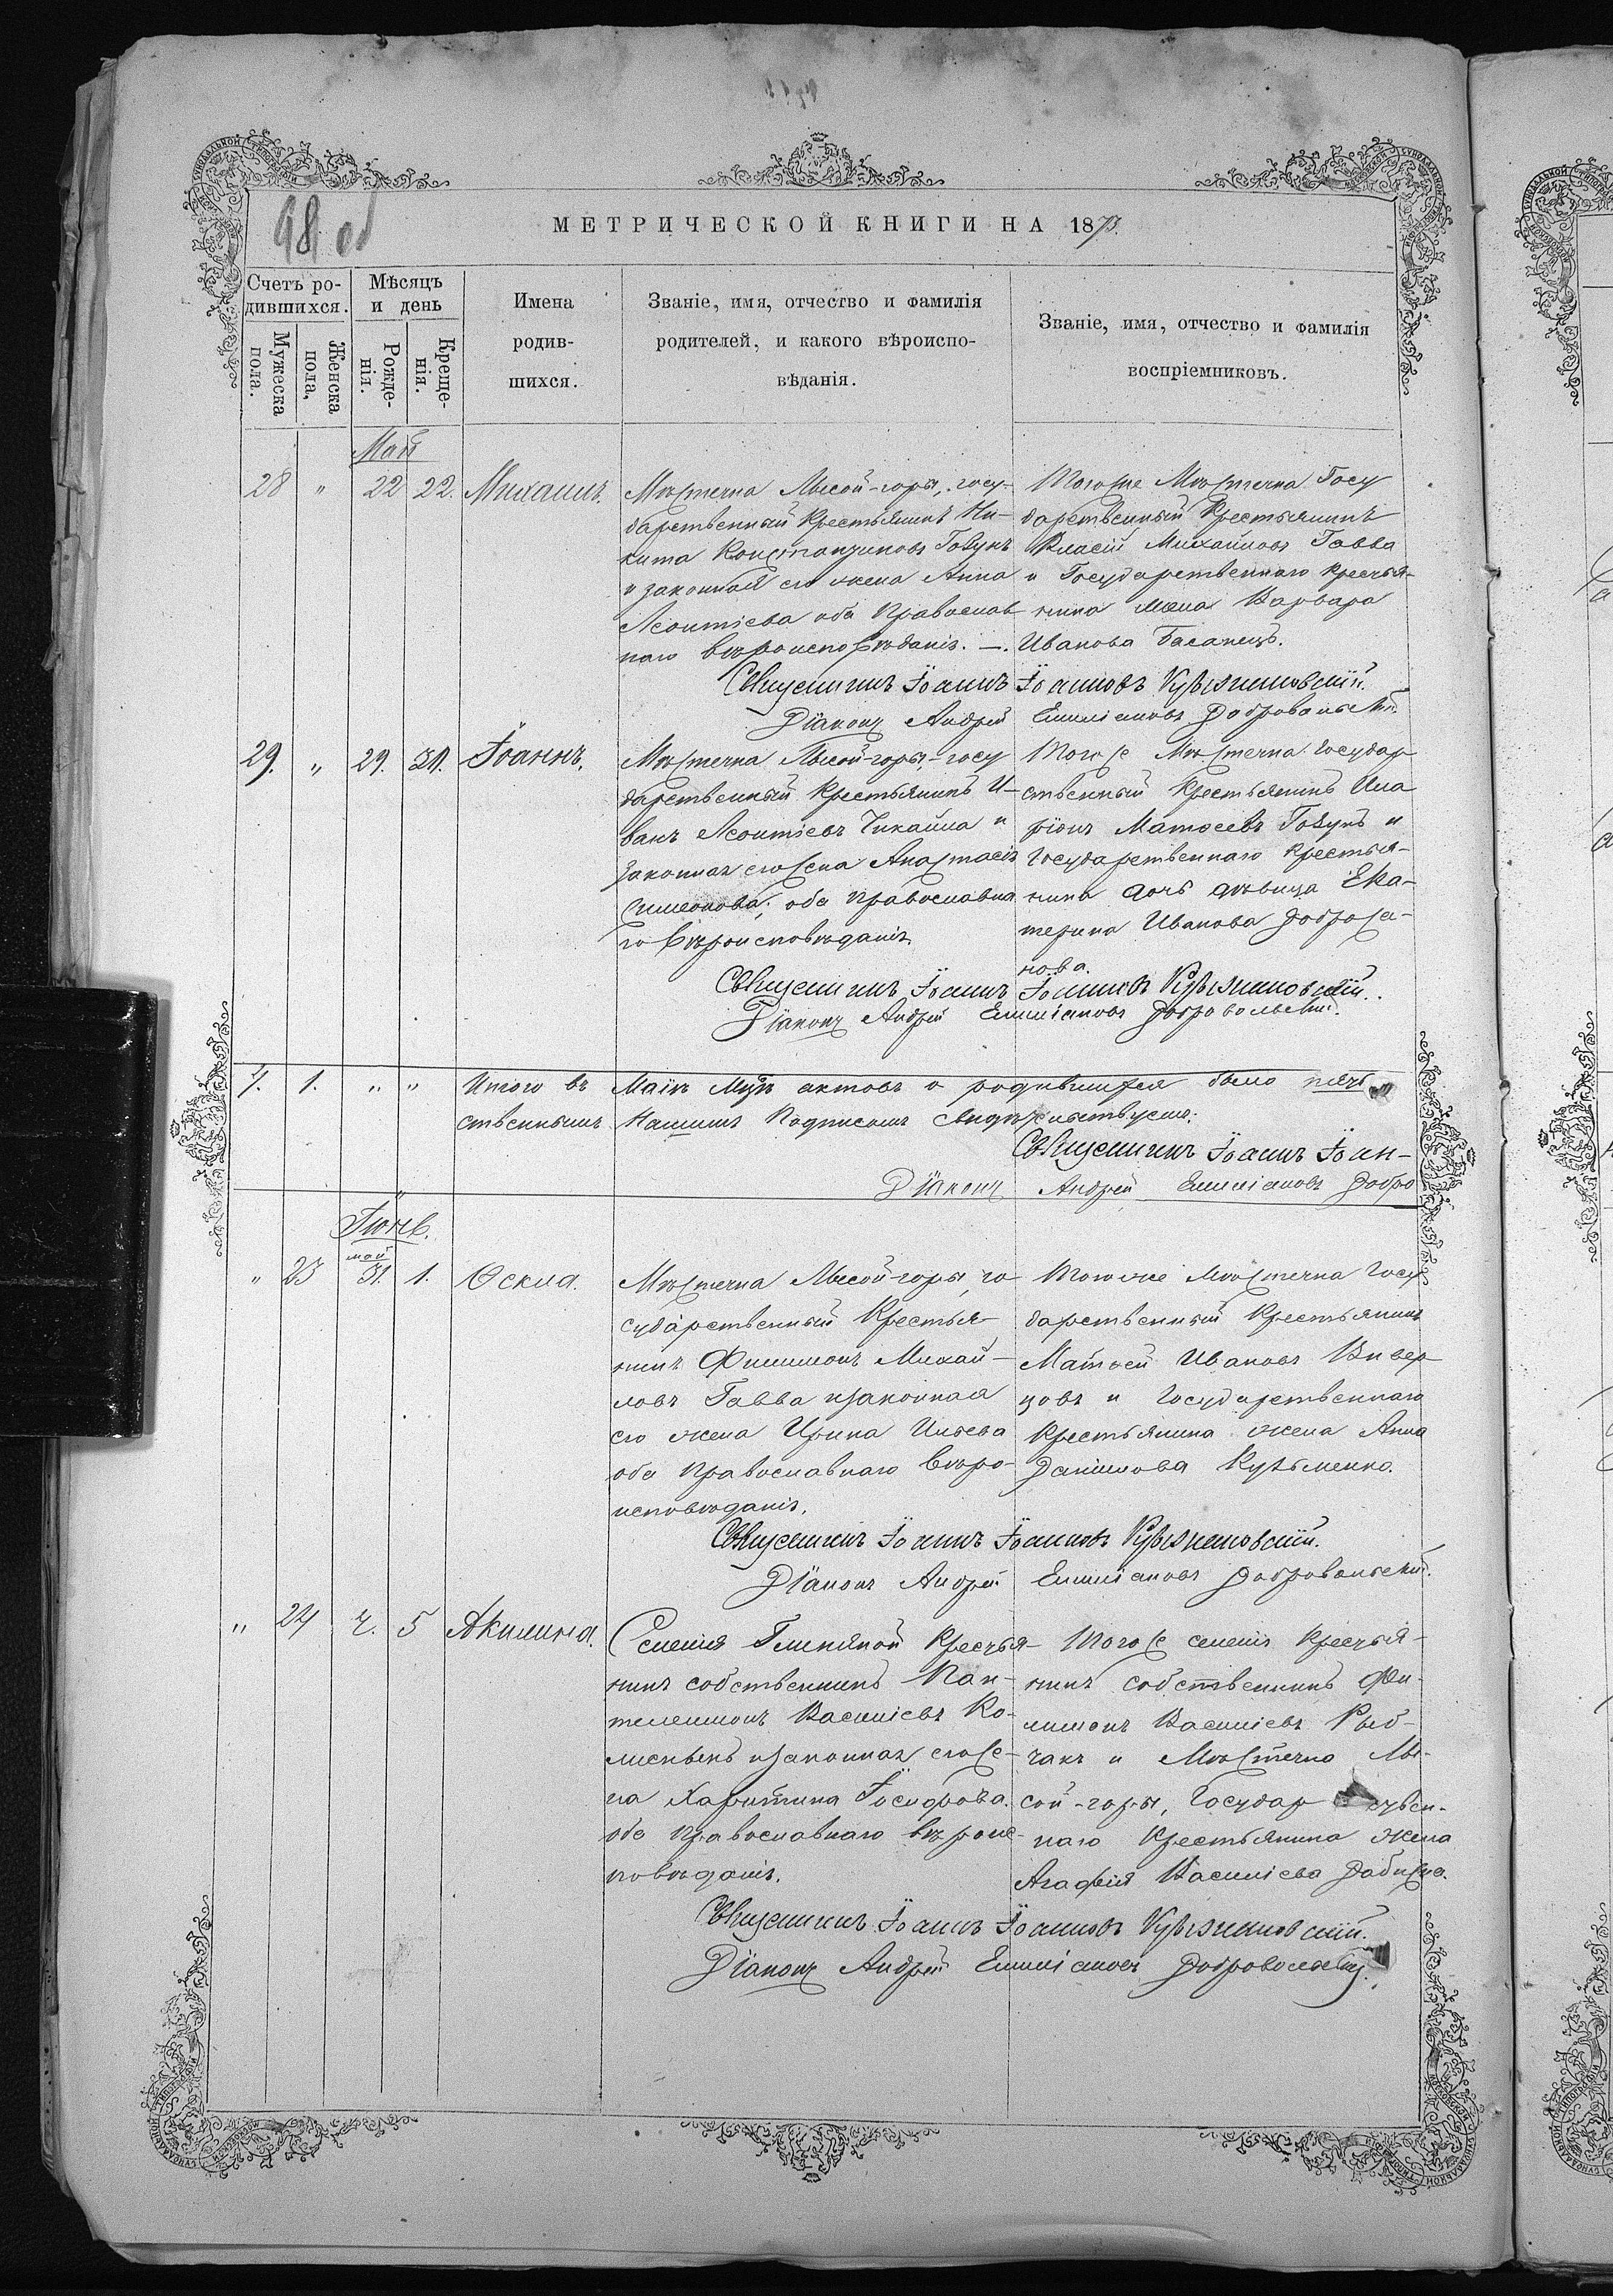 48 об
МЕТРИЧЕСКОЙ КНИГИ НА 187
Счетъ ро-
дившихся.
Мужеска
пола.
Женска
пола,
Мѣсяцъ
и день
Рожде-
нія.
Креще-
нія.
Имена
родив-
шихся.
Званіе, имя, отчество и фамилія
родителей, и какого вѣроиспо-
вѣданія.
Званіе, имя, отчество и фамилія
воспріемниковъ.
Май
28 " 22 22. Михаилъ.
Мѣстечка Лысой-горы, госу-
дарственный крестьянинъ Ни-
кита Константиновъ Говунъ
и законная его жена Анна
Леонтіева оба Православ
наго вѣроисповѣданія. —.
Тогоже Мѣстечка Госу
дарственный Крестьянинъ
Власій Михайловъ Гавва
и Государственнаго крестья-
нина жена Варвара
Иванова Басанецъ.
Священникъ Іоаннъ Іоанновъ
Діаконъ Андрей Емиліановъ Добровольскій.
29. " 29. 31. Іоаннъ.
Мѣстечка Лысой-горы, госу
дарственный Крестьянинъ И-
ванъ Леонтіевъ Чикайла и
законная его жена Анастасія
Симеонова, оба православна
го вѣроисповѣданія
Тогоже Мѣстечка Государ
ственный Крестьянинъ Ила
ріонъ Матѳеевъ Говунъ и
Государственнаго крестья-
нина дочь дѣвица Ека-
терина Иванова
нова.
Священникъ Іоаннъ Іоанновъ
Діаконъ Андрей Емиліановъ Добровольскій.
4. 1. " " Итого въ Маѣ Мцѣ актовъ о родившихся было пять
ственнымъ Нашимъ Подписомъ Свидѣтельствуемъ:
Священникъ Іоаннъ Іоан-
Діаконъ Андрей Емиліановъ Добро
Іюнь.
май
" 23 31. 1. Ѳекла.
Мѣстечка Лысой-горы, го
сударственный Крестья-
нинъ Филимонъ Михай-
ловъ Гавва и законная
его жена Ирина Ильева
оба православнаго вѣро-
исповѣданія.
Тогоже Мѣстечка Госу
дарственный Крестьянинъ
Матѳей Ивановъ
цовъ и Государственнаго
Крестьянина жена Анна
Даниилова Кузьменко.
Священникъ Іоаннъ Іоанновъ
Діаконъ Андрей Емиліановъ Добровольскій.
" 24 4. 5 Акилина.
Селенія Глиняной Крестья-
нинъ собственникъ Пан-
телеимонъ Василіевъ Ко-
и законная его же-
на Харитина Ѳосифова.
оба православнаго вѣроис-
повѣданія.
Тогоже селенія Крестья-
нинъ собственникъ Фи-
лимонъ Василіевъ Рыб-
чакъ и Мѣстечка Лы-
сой-горы, Государ ствен-
наго Крестьянина жена
Агафія Василіева
Священникъ Іоаннъ Іоанновъ
Діаконъ Андрей Емиліановъ Добровольскій.